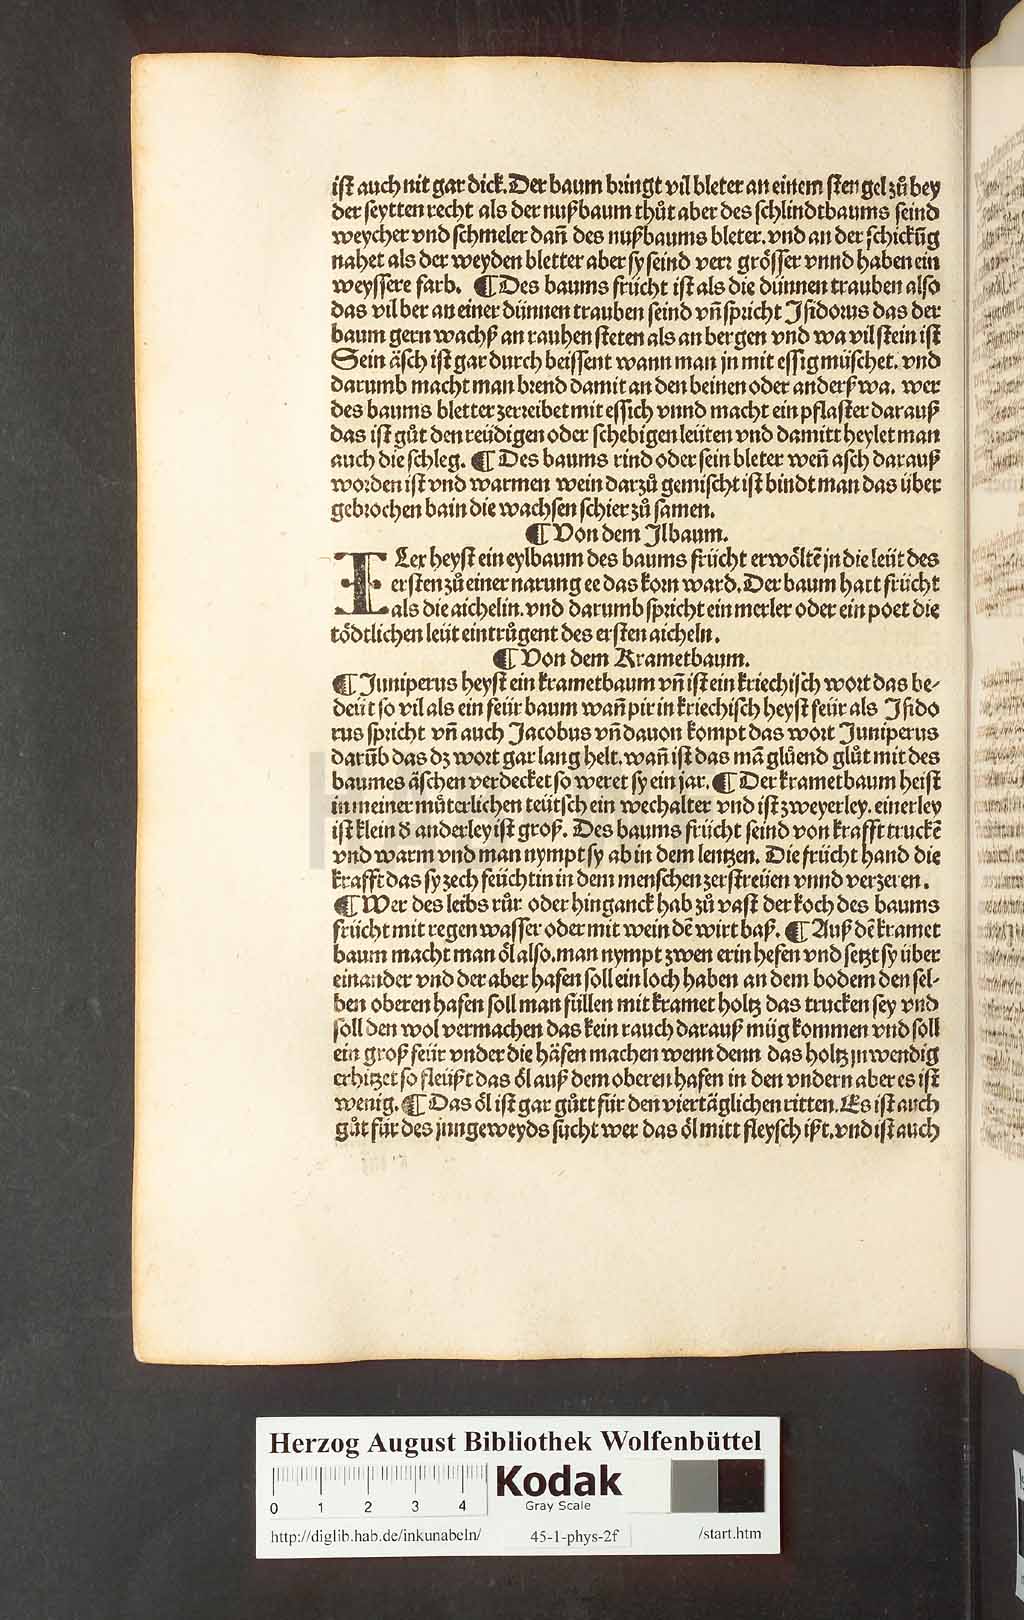 ist auch nit gar dick. Der baum bringt vil bleter an einem stengel zů bey
der seytten recht als der nußbaum thůt aber des schlindtbaums seind
weycher vnd schmeler dañ des nußbaums bleter. vnd an der schickũg
nahet als der weyden bletter aber sy seind verr grösser vnnd haben ein
weyssere farb. ¶ Des baums frücht ist als die dünnen trauben also
das vil ber an einer dünnen trauben seind vñ spricht Isidorus das der
baum gern wachß an rauhen steten als an bergen vnd wa vil stein ist
Sein äsch ist gar durch beissent wann man jn mit essig müschet. vnd
darumb macht man brend damit an den beinen oder anderßwa. wer
des baums bletter zerreibet mit essich vnnd macht ein pflaster darauß
das ist gůt den reüdigen oder schebigen leüten vnd damitt heylet man
auch die schleg. ¶ Des baums rind oder sein bleter weñ asch darauß
worden ist vnd warmen wein darzů gemischt ist bindt man das über
gebrochen bain die wachsen schier zů samen.
¶ Von dem Ilbaum.
ILex heyst ein eylbaum des baums frücht erwöltẽ jn die leüt des
ersten zů einer narung ee das korn ward. Der baum hatt frücht
als die aichelin. vnd darumb spricht ein merler oder ein poet die
tödtlichen leüt eintrůgent des ersten aicheln.
¶ Von dem Krametbaum.
¶ Juniperus heyst ein krametbaum vñ ist ein kriechisch wort das be-
deüt so vil als ein feür baum wañ pir in kriechisch heyst feür als Isido
rus spricht vñ auch Jacobus vñ dauon kompt das wort Juniperus
darũb das dz wort gar lang helt. wañ ist das mã glůend glůt mit des
baumes äschen verdecket so weret sy ein jar. ¶ Der krametbaum heist
in meiner můterlichen teütsch ein wechalter vnd ist zweyerley. einerley
ist klein d̄ anderley ist groß. Des baums frücht seind von krafft truckẽ
vnd warm vnd man nympt sy ab in dem lentzen. Die frücht hand die
krafft das sy zech feüchtin in dem menschen zerstreüen vnnd verzeren.
¶ Wer des leibs růr oder hinganck hab zů vast der koch des baums
frücht mit regen wasser oder mit wein dẽ wirt baß. ¶ Auß dẽ kramet
baum macht man öl also. man nympt zwen erin hefen vnd setzt sy über
einander vnd der aber hafen soll ein loch haben an dem bodem den sel-
ben oberen hafen soll man füllen mit kramet holtz das trucken sey vnd
soll den wol vermachen das kein rauch darauß müg kommen vnd soll
ein groß feür vnder die häfen machen wenn denn das holtz jnwendig
erhitzet so fleüßt das öl auß dem oberen hafen in den vndern aber es ist
wenig. ¶ Das öl ist gar gůtt für den viertäglichen ritten. Es ist auch
gůt für des jungeweyds sucht wer das öl mitt fleysch ißt. vnd ist auch
Herzog August Bibliothek Wolfenbüttel
0 1 2 3 4
Kodak
Gray Scale
http://diglib.hab.de/inkunabeln/ 45-1-phys-2f /start.htm